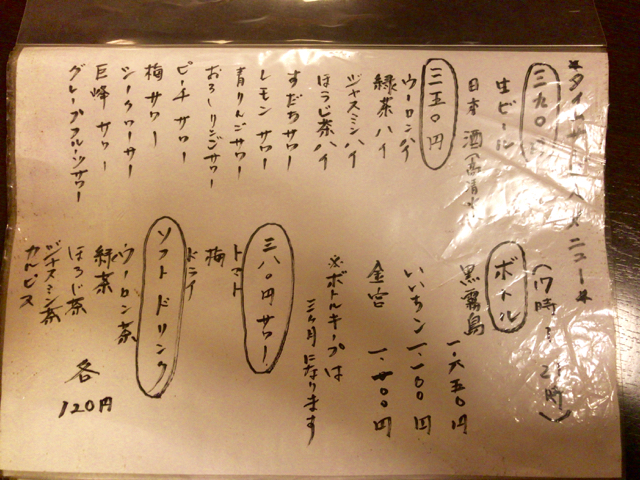 *タイムサービスメニュー*
(17時~21時)
三九〇円
生ビール
日本酒
三五〇円
ウーロンハイ
緑茶ハイ
ジャスミンハイ
ほうじ茶ハイ
すだちサワー
レモンサワー
青りんごサワー
おろしりんごサワー
ピーチサワー
梅サワー
シークワーサー
巨峰サワー
グレープフルーツサワー
ボトル
黒霧島 一、六五〇円
いいちこ 一、一〇〇円
金宮 一、一〇〇円
※ボトルキープは
三ヶ月になります
三八〇円サワー
トマト
梅
ドライ
ソフトドリンク
ウーロン茶
緑茶
ほうじ茶
ジャスミン茶
カルピス
各
120円